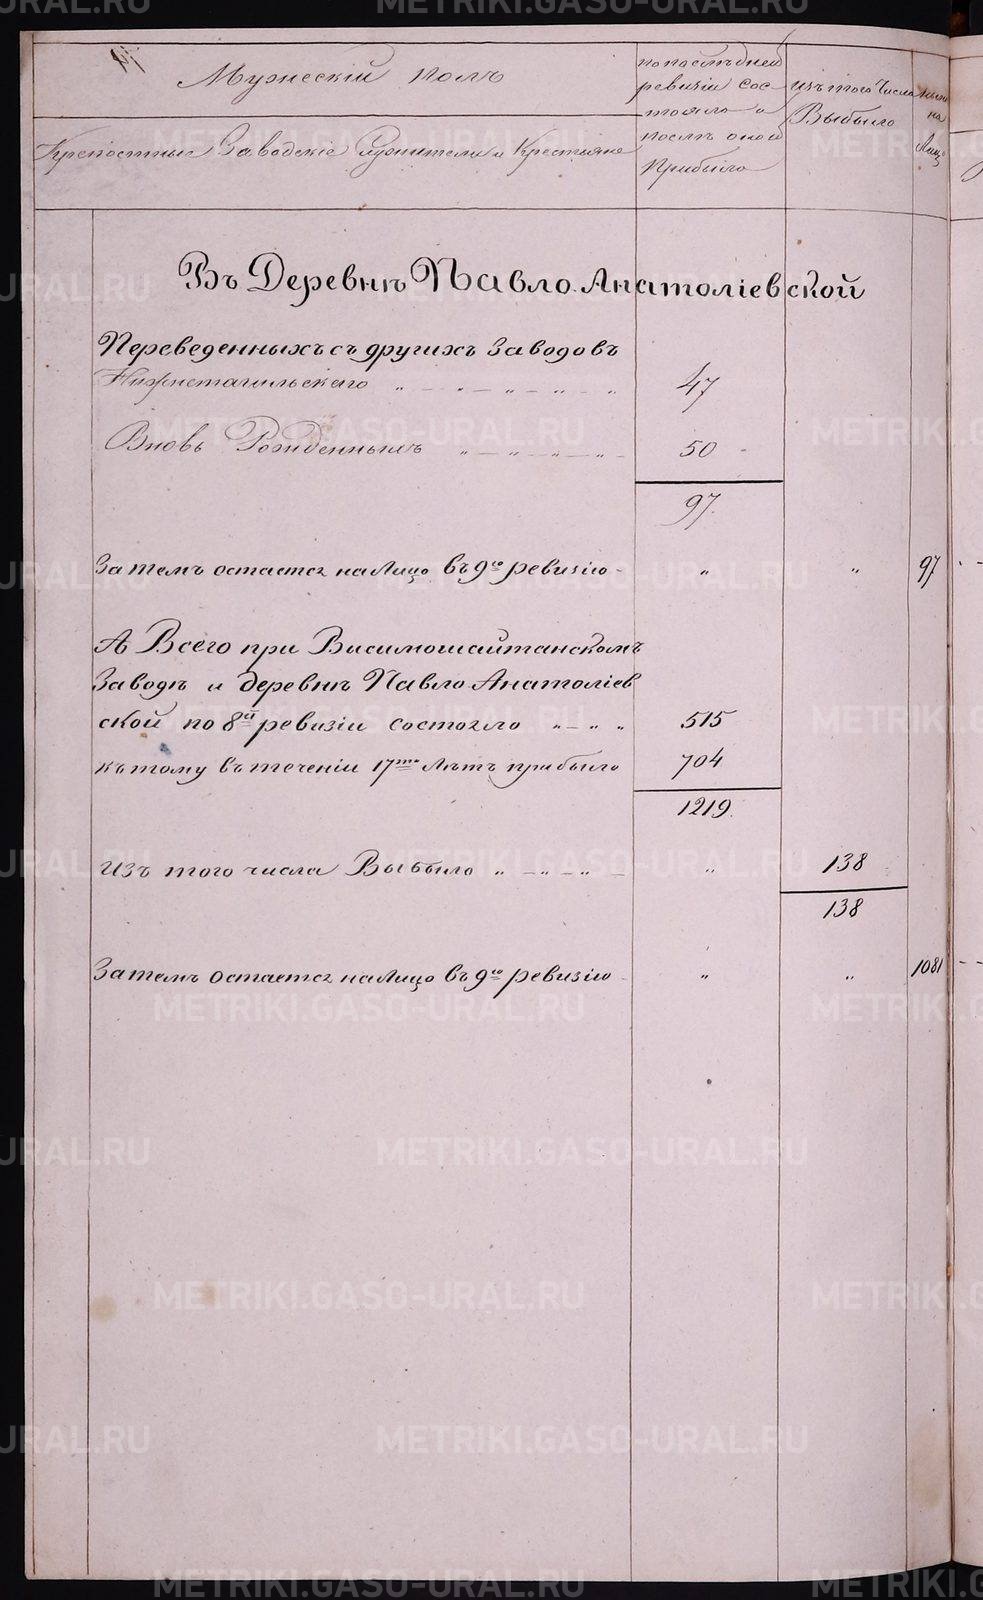 Мужескій полъ
Крепостные Заводскіе Служители и Крестьяне
по последней
ревизіи сос-
тояло и
после оной
Прибыло
изъ того числа
Выбыло
ныне
на
Лицо
Въ Деревнѣ Павло-Анатоліевской
Переведенныхъ съ другихъ Заводовъ
Нижнетагильскаго „ — „ — „ — „ — „ 47
Вновь Рожденныхъ „ — „ — „ — „ — 50 -
97.
Затемъ остается на Лицо въ 9ю ревизію - „ „ 97
А Всего при Висимошайтанскомъ
Заводѣ и деревнѣ Павло-Анатоліев
ской по 8й ревизіи состояло „ — „ „ 515
къ тому въ теченіи 17ти Лѣтъ прибыло 704
1219.
Изъ того числа Выбыло „ — „ — „ — „ 138
138
Затемъ остается на Лицо въ 9ю ревизію - „ „ 1081
METRIKI.GASO-URAL.RU